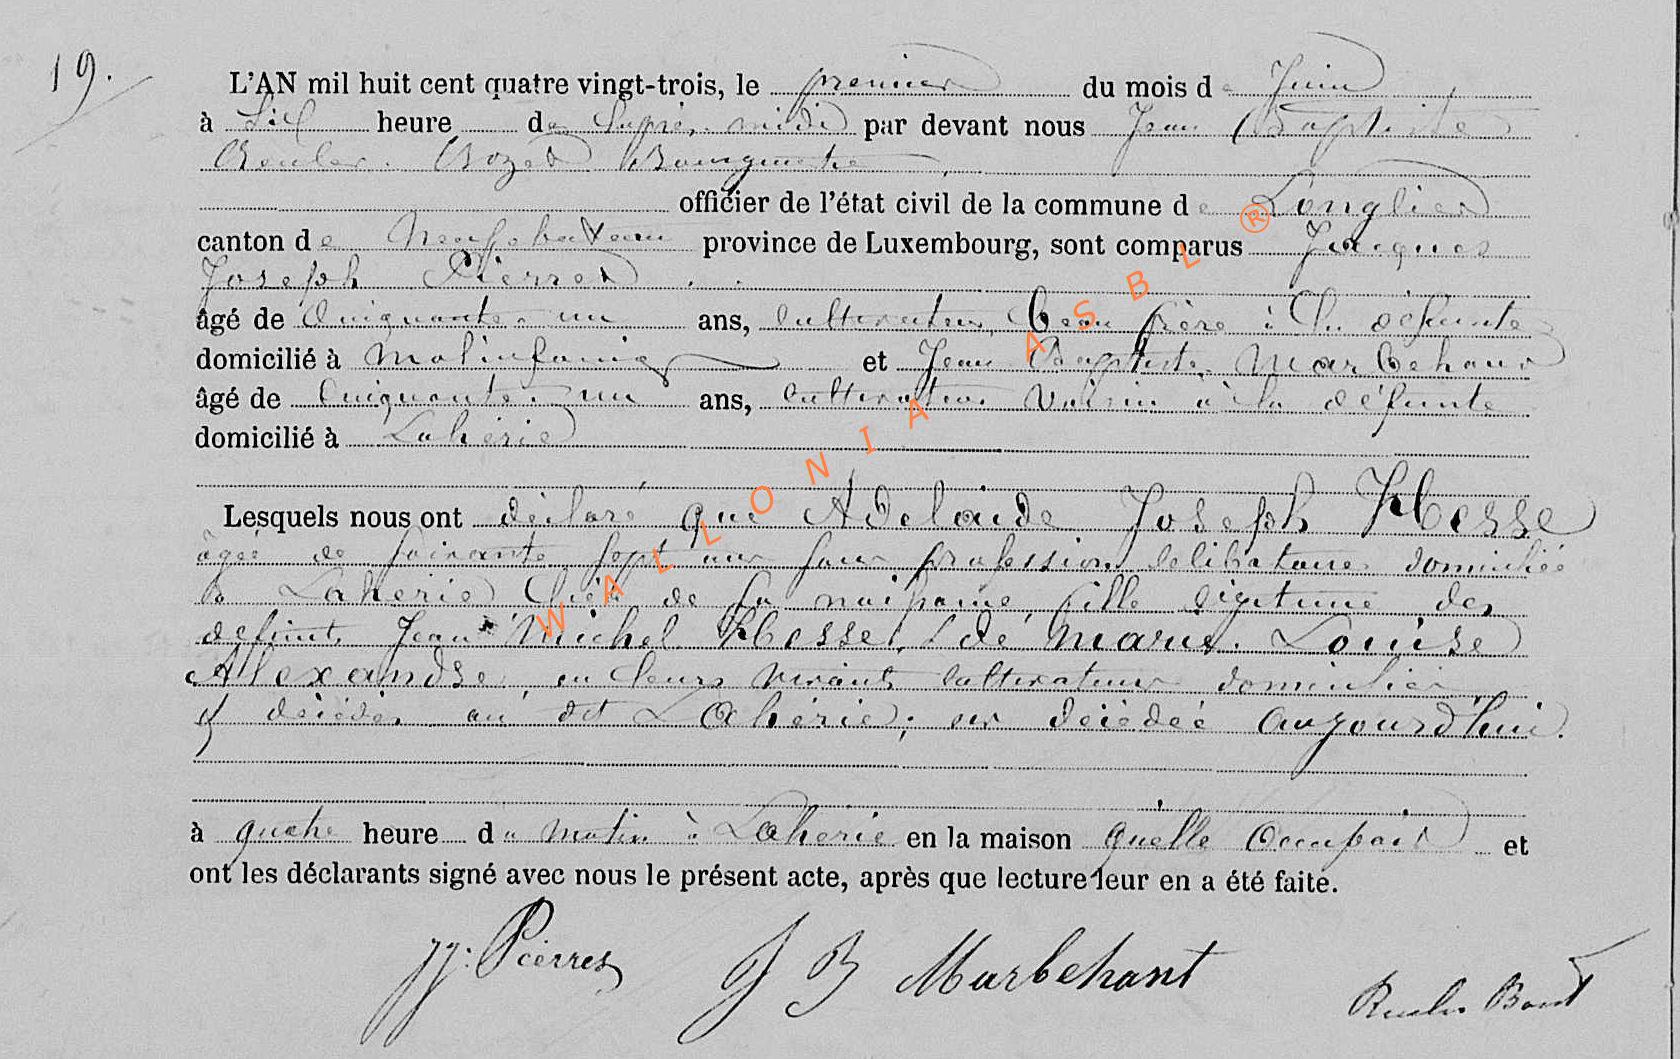 19.
L'AN mil huit cent quatre vingt-trois, le premier du mois de Juin
à Six heure de l'aprés-midi par devant nous Jean Baptiste
Bourgmestre
officier de l'état civil de la commune de Longlier
canton de Neufchateau province de Luxembourg, sont comparus Jacques
Joseph Pierret
âgé de Cinquante-un ans, Cultivateur, beau frère à la défunte
domicilié à Molinfaing et Jean Baptiste Marbehant
âgé de Cinquante-un ans, cultivateur Voisin à la défunte
domicilié à Lahérie
Lesquels nous ont déclaré que Adelaïde Joseph Hesse
âgée de soixante sept ans sans profession celibataire domiciliée
à Lahérie lieu de sa naissance, fille légitime des
defunts Jean Michel Hesse, & de Marie Louise
Alexandre, en leurs vivants cultivateurs domiciliés
et décédés au dit Lahérie; est décédée aujourd'hui.
à quatre heure du matin à Lahérie en la maison qu'elle occupait et
ont les déclarants signé avec nous le présent acte, après que lecture leur en a été faite.
JJ: Pierret J B Marbehant
WALLONIA ASBL ®